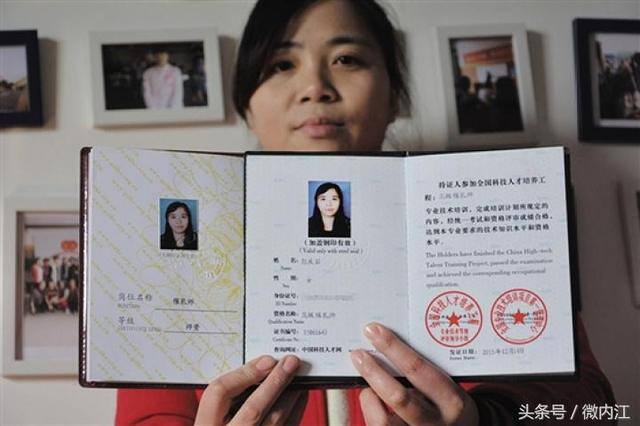 岗位名称
催乳师
等级
师资
(加盖钢印有效)
(Valid only with steel seal)
姓 名
Name
性 别
女
Sex
身份证号
ID Number
资格名称
高级催乳师
Qualification Name
证书编号
Certificate No.
查询网址: 中国科技人才网
持证人参加全国科技人才培养工
程: 高级催乳师
专业技术培训, 完成培训计划所规定的
内容, 经统一考试和资格评审成绩合格,
达到本专业要求的技术知识水平和资格
水平。
The Holders have finished the China High-tech
Talent Training Project, passed the examination
and achieved the corresponding occupational
qualification.
发证日期
2015年12月14日
Issued Date
头条号 / 微内江